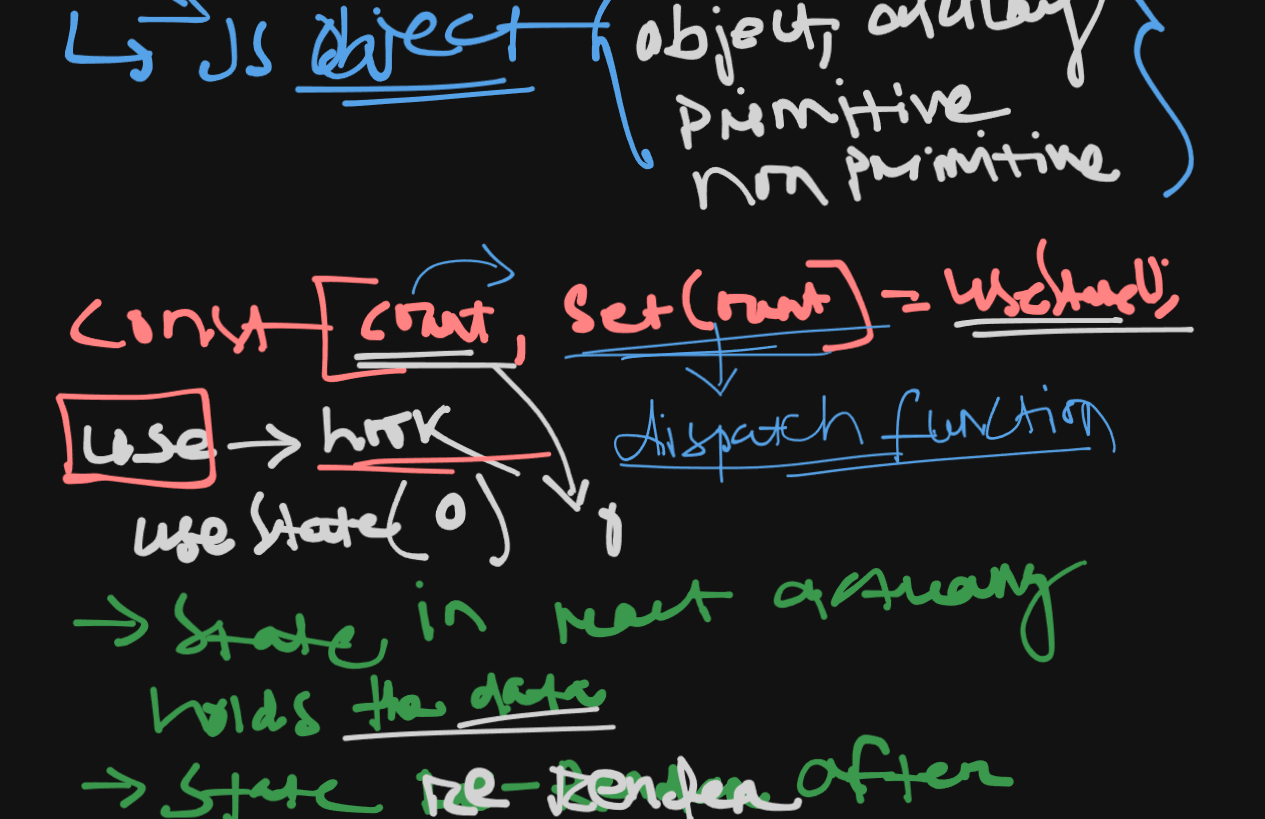 JS object { object, array
primitive
non primitive }
const [count, setCount] = useState();
use → hook
dispatch function
useState(0)
→ State in react actually
holds the data
→ State Re-Render after